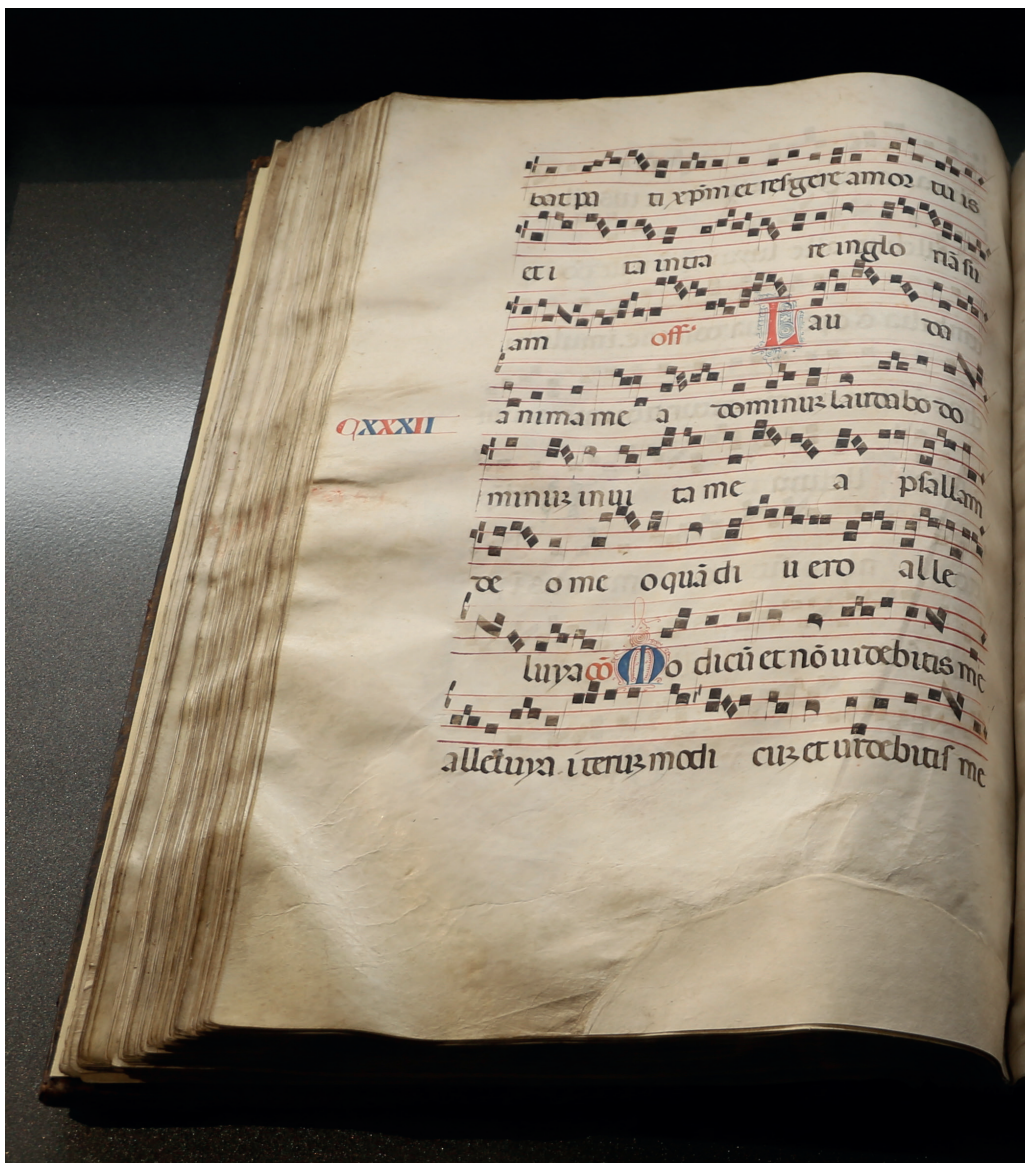 bat pa ti xp̄m et resgere amor tu is
et i ta intra re inglo riā su
am off Lau da
CXXXII
a nima me a dominuꝫ laudabo do
minuꝫ in ui ta me a psallam
de o me o quā di u ero alle
luya cō Mo dicū et nō uidebitis me
alleluya iteruꝫ modi cuꝫ et uidebitis me